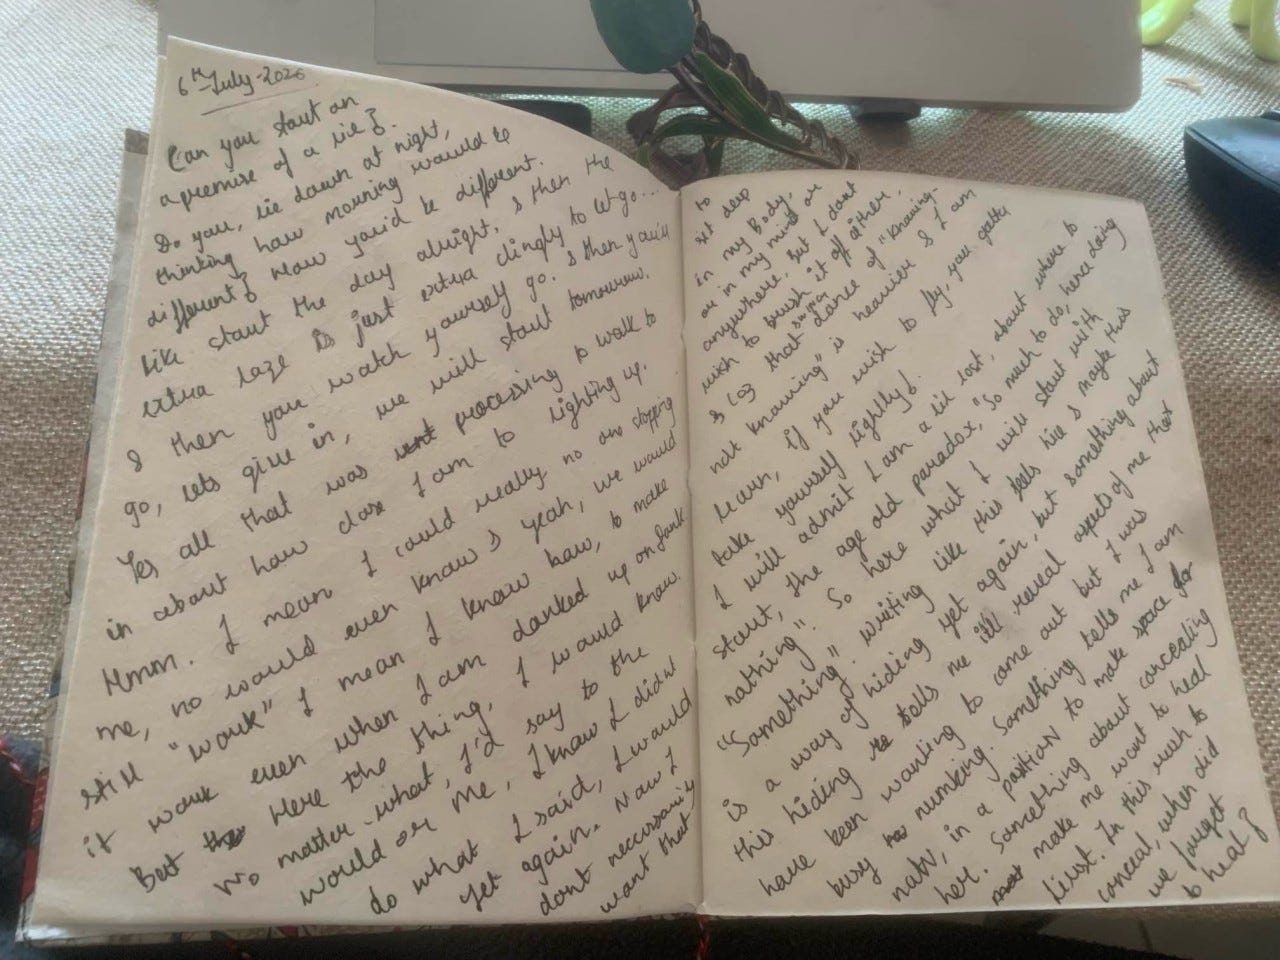 6th July-2026
Can you start on
a premise of a lie?
Do you, lie down at night,
thinking how morning would be
different? How you'd be different.
like start the day alright, & then the
extra laze is just extra clingly to let go...
& then you watch yourself go. & then you'll
go, lets give in, we will start tomorrow.
Yes all that was went processing to walk to
in about how close I am to lighting up.
Hmm. I mean I could really no one stopping
me, no would even know & yeah, we would
still "work" I mean I know how, to make
it work even when I am danked up on dank.
But the Here the thing, I would know.
No matter what, I'd say to the
world or me, I know I didn't
do what I said, I would
yet again. Now I
dont neccersarily
want that
to
sit deep
in my Body,
or in my mind or
anywhere, But I dont
wish to brush it off either.
& coz that dance of "knowing-
not knowing" is heavier & I am
learn, if you wish to fly, you gotta
take yourself lightly!
I will admit I am a lil lost, about where to
start, the age old paradox, "So much to do, hence doing
nothing". So here what I will start with
"Something" writing like this feels like & maybe this
is a way of hiding yet again, but something about
this hiding tells me ill reveal aspects of me that
have been wanting to come out but I was
busy numbing. Something tells me I am
natv, in a position to make space for
her. Something about concealing
make me want to heal
first. In this rush to
conceal, when did
we forget
to heal?